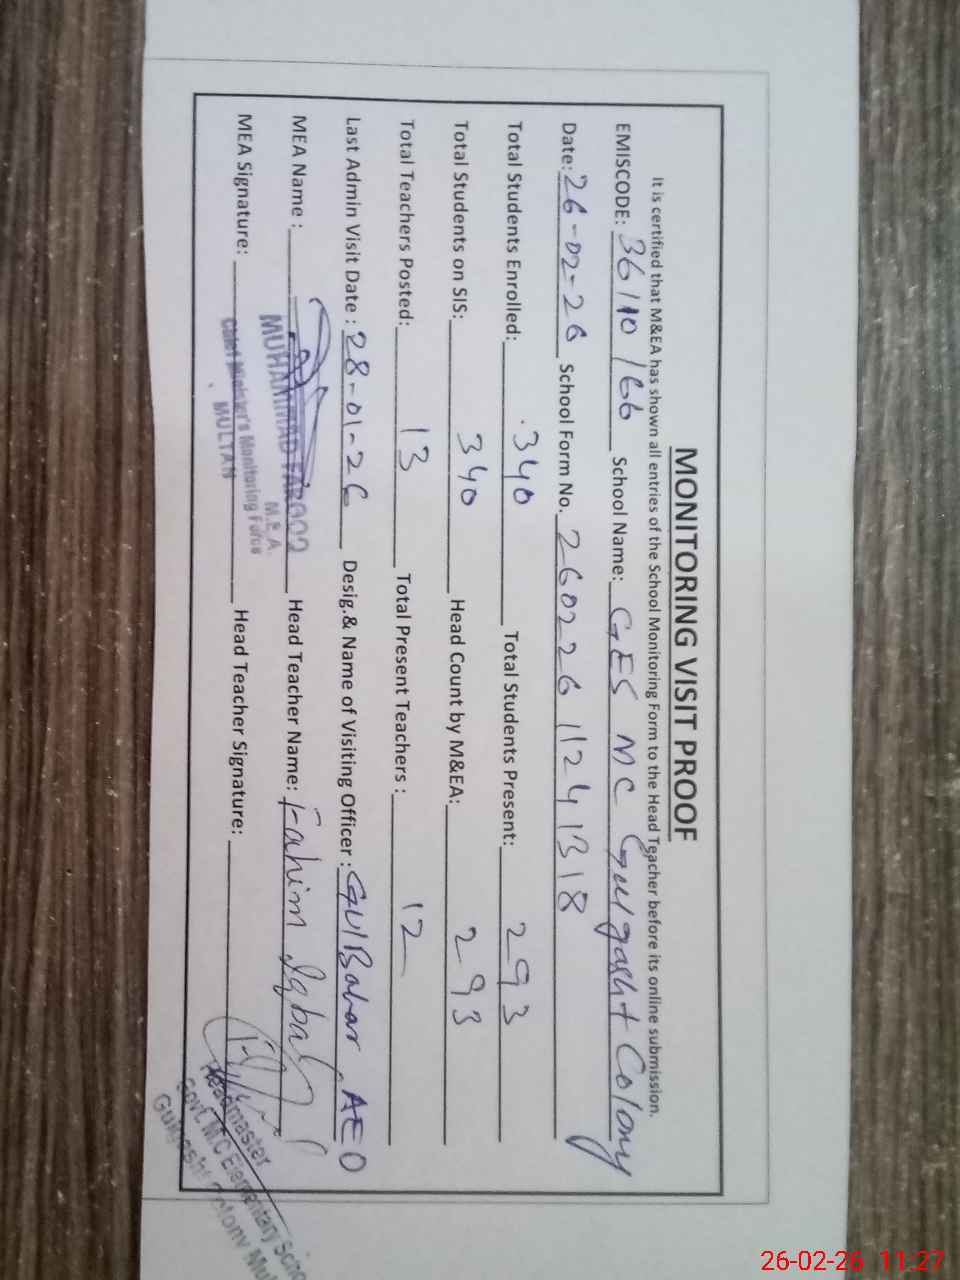 MONITORING VISIT PROOF
It is certified that M&EA has shown all entries of the School Monitoring Form to the Head Teacher before its online submission.
EMISCODE: 36110166 School Name: GES MC Gulgasht Colony
Date: 26-02-26 School Form No. 26022611241318
Total Students Enrolled: 340 Total Students Present: 293
Total Students on SIS: 340 Head Count by M&EA: 293
Total Teachers Posted: 13 Total Present Teachers : 12
Last Admin Visit Date : 28-01-26 Desig.& Name of Visiting Officer : GulBahar, AEO
MEA Name : Head Teacher Name: Fahim Iqbal
MUHAMMAD FAROOQ
M.E.A.
Chief Minister's Monitoring Force
MULTAN
MEA Signature: Head Teacher Signature:
Headmaster
Govt. M.C Elementary Scho
Gulgasht Colony Mul
26-02-26 11:27